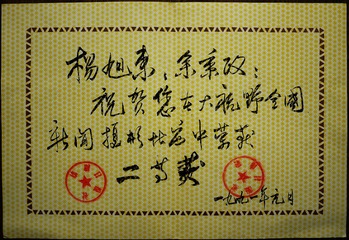 杨旭东、余秉政：
祝贺您在大视野全国
新闻摄影比赛中荣获
二等奖
一九九一年元月